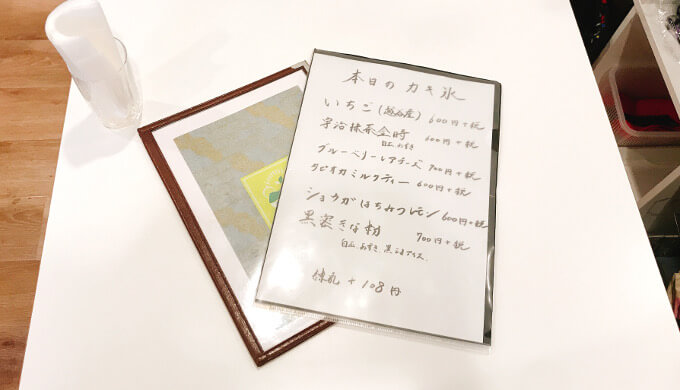 本日のカキ氷
いちご(越谷産) 600円+税
宇治抹茶金時 600円+税
白玉、あずき
ブルーベリーレアチーズ 700円+税
タピオカミルクティー 600円+税
ショウガはちみつレモン 600円+税
黒蜜きな粉 700円+税
白玉、あずき、黒ごまアイス
練乳 +108円